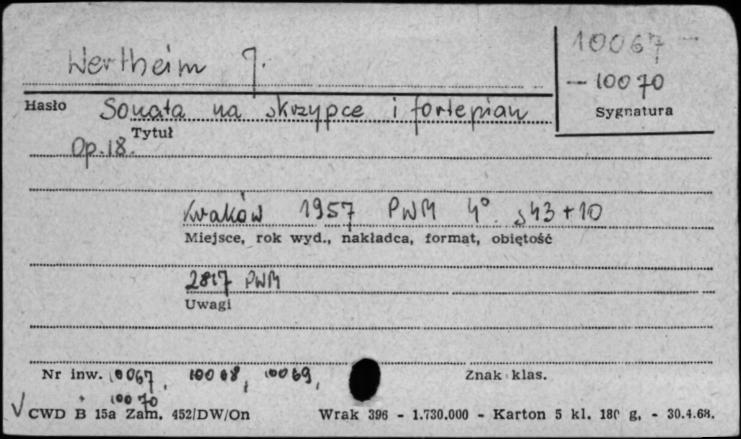 Wertheim J.
10067
— 10070
Hasło
Sonata na skrzypce i fortepian
Sygnatura
Tytuł
Op. 18.
Kraków 1957 PWM 4° s 43 + 10
Miejsce, rok wyd., nakładca, format, objętość
2817 PWM
Uwagi
Nr inw. 10067, 10068, 10069,
10070
Znak klas.
CWD B 15a Zam. 452/DW/On Wrak 396 - 1.730.000 - Karton 5 kl. 180 g. - 30.4.68.